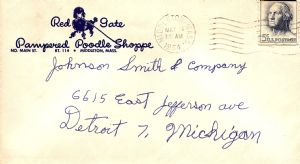 Red Gate
Pampered Poodle Shoppe
NO. MAIN ST. RT. 114 • MIDDLETON, MASS.
MAY
AM
1964
5¢ U.S. POSTAGE
Johnson Smith & Company
6615 East Jefferson ave
Detroit 7, Michigan